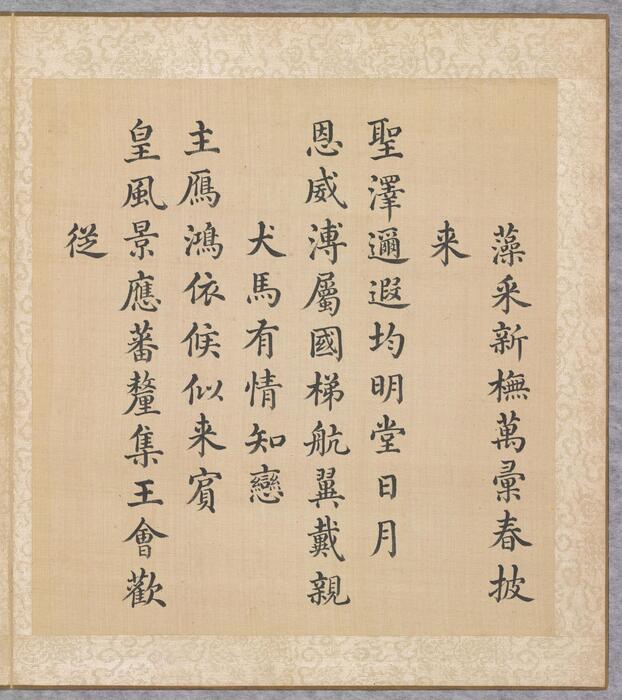 藻采新橅萬彚春披
来
聖澤邇遐均明堂日月
恩威溥屬國梯航翼戴親
犬馬有情知戀
主鴈鴻依候似来賓
皇風景應蕃釐集王會歡
從